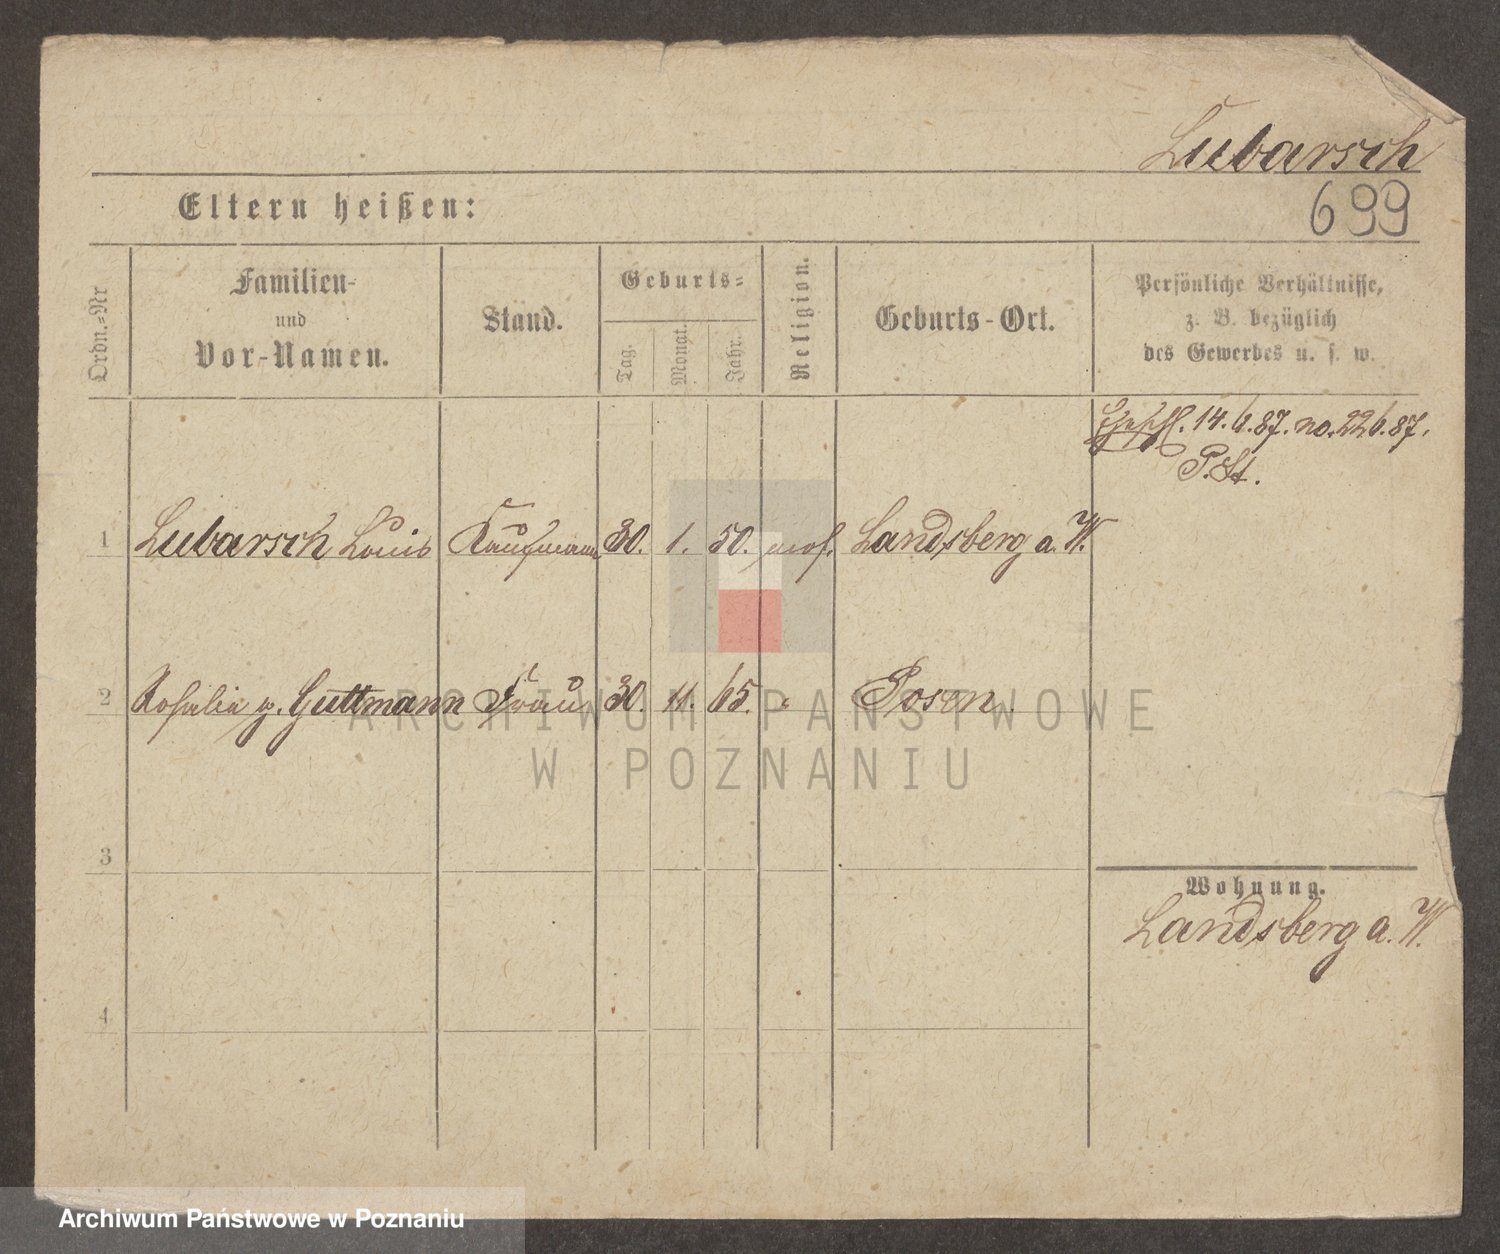 Lubarsch
699
Eltern heißen:
Ordn.=Nr
Familien-
und
Vor-Namen.
Stand.
Geburts=
Tag.
Monat.
Jahr.
Religion.
Geburts-Ort.
Persönliche Verhältnisse,
z. B. bezüglich
des Gewerbes u. s. w.
14. 6. 87. no. 226. 87.
P. St.
1 Lubarsch Louis Kaufmann 30. 1. 50. mos. Landsberg a. W.
2 Rosalia g. Guttmann Frau 30. 11. 65. " Posen.
3
Wohnung.
Landsberg a. W.
4
ARCHIWUM PAŃSTWOWE
W POZNANIU
Archiwum Państwowe w Poznaniu